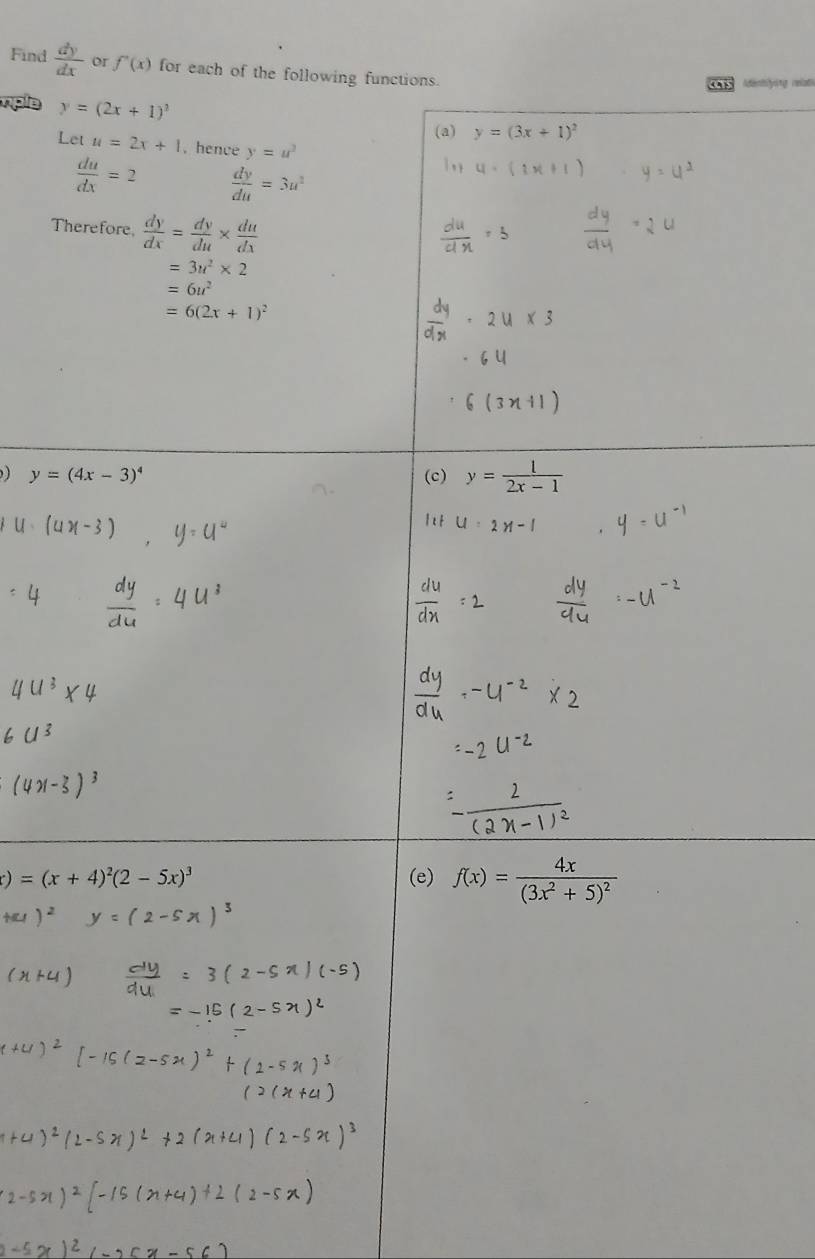 Find dy/dx or f'(x) for each of the following functions.
y = (2x + 1)³
Let u = 2x + 1, hence y = u³
du/dx = 2 dy/du = 3u²
Therefore, dy/dx = dy/du × du/dx
= 3u² × 2
= 6u²
= 6(2x + 1)²
(a) y = (3x + 1)²
y = u²
du/dx = 3 dy/du = 2u
dy/dx = 2u × 3
= 6u
= 6(3x+1)
) y = (4x − 3)⁴
u = (4x-3), y = u⁴
= 4 dy/du = 4u³
4u³ × 4
6u³
(4x-3)³
(c) y = 1/(2x − 1)
let u = 2x-1, y = u⁻¹
du/dx = 2 dy/du = -u⁻²
dy/du = -u⁻² × 2
= -2u⁻²
= -2/(2x-1)²
) = (x + 4)²(2 − 5x)³
+4)² y = (2-5x)³
(x+4) dy/du = 3(2-5x)(-5)
= -15(2-5x)²
+4)² [-15(2-5x)² + (2-5x)³
(2(x+4)
+4)²(2-5x)² + 2(x+4)(2-5x)³
2-5x)² [-15(x+4)+2(2-5x)
-5x)² (-25x-56)
(e) f(x) = 4x/(3x² + 5)²